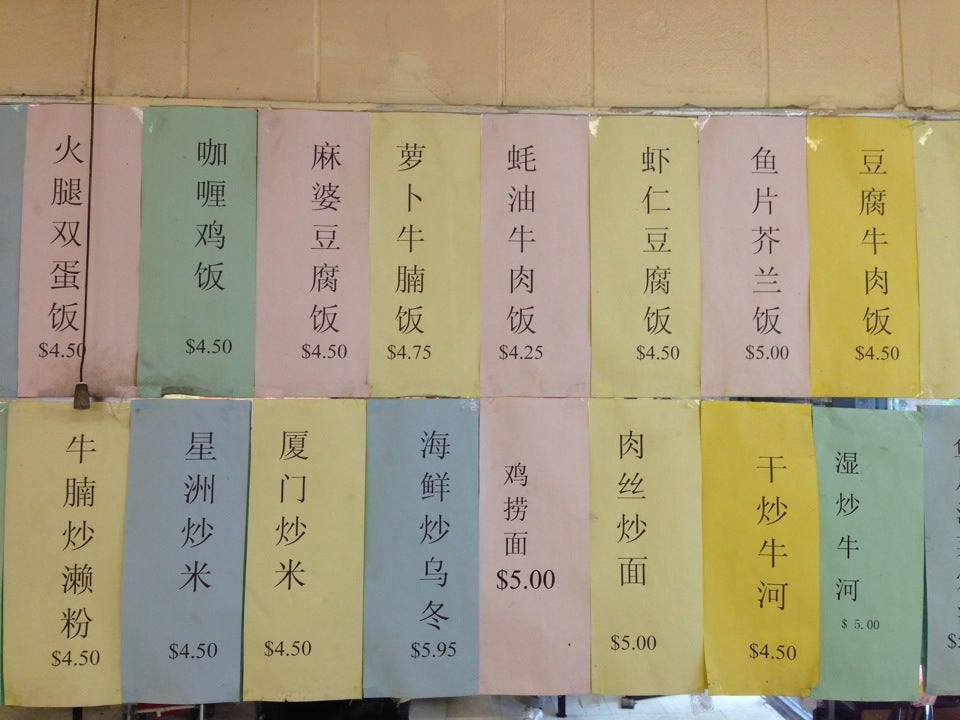 火腿双蛋饭
$4.50
咖喱鸡饭
$4.50
麻婆豆腐饭
$4.50
萝卜牛腩饭
$4.75
蚝油牛肉饭
$4.25
虾仁豆腐饭
$4.50
鱼片芥兰饭
$5.00
豆腐牛肉饭
$4.50
牛腩炒濑粉
$4.50
星洲炒米
$4.50
厦门炒米
$4.50
海鲜炒乌冬
$5.95
鸡捞面
$5.00
肉丝炒面
$5.00
干炒牛河
$4.50
湿炒牛河
$ 5.00